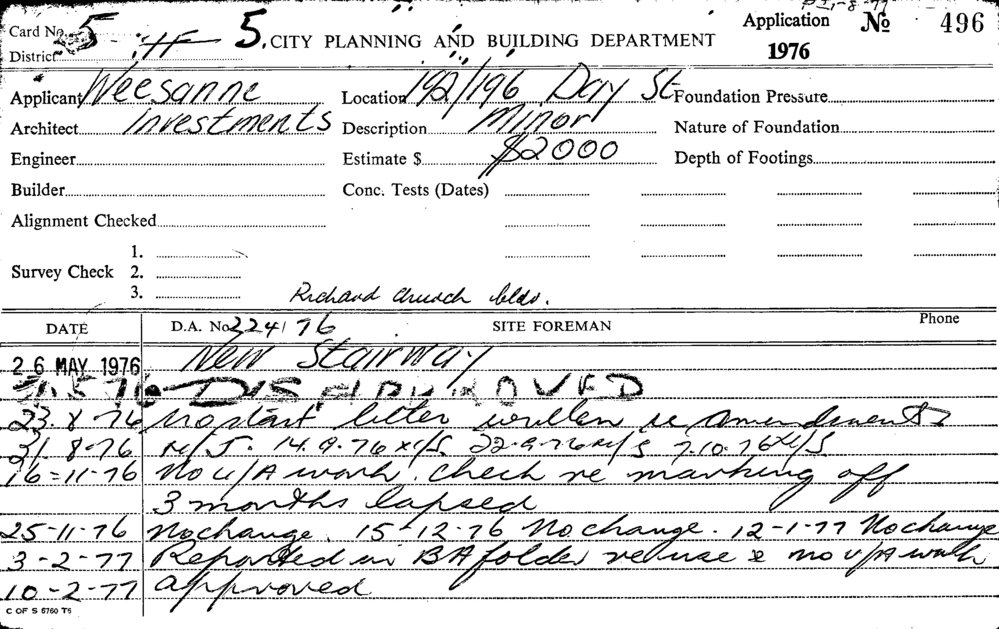 Card No. 5 5. CITY PLANNING AND BUILDING DEPARTMENT Application No 496
District 1976
Applicant Weesanne Location 192/196 Day St Foundation Pressure
Architect Investments Description Minor Nature of Foundation
Engineer Estimate $ $2000 Depth of Footings
Builder Conc. Tests (Dates)
Alignment Checked
1.
Survey Check 2.
3. Richard Church blds.
DATE D.A. No 224/76 SITE FOREMAN Phone
26 MAY 1976 New Stairway
DISAPPROVED
23-8-76 No start letter written re amendments
31-8-76 N/S. 14.9.76 N/S. 22-9-76 N/S 7.10.76 N/S
16-11-76 No U/A work. Check re marking off
3 months lapsed
25-11-76 No change. 15-12-76 No change. 12-1-77 No change
3-2-77 Reported in BA folder re use & no U/A work
10-2-77 approved
C OF S 5760 T5